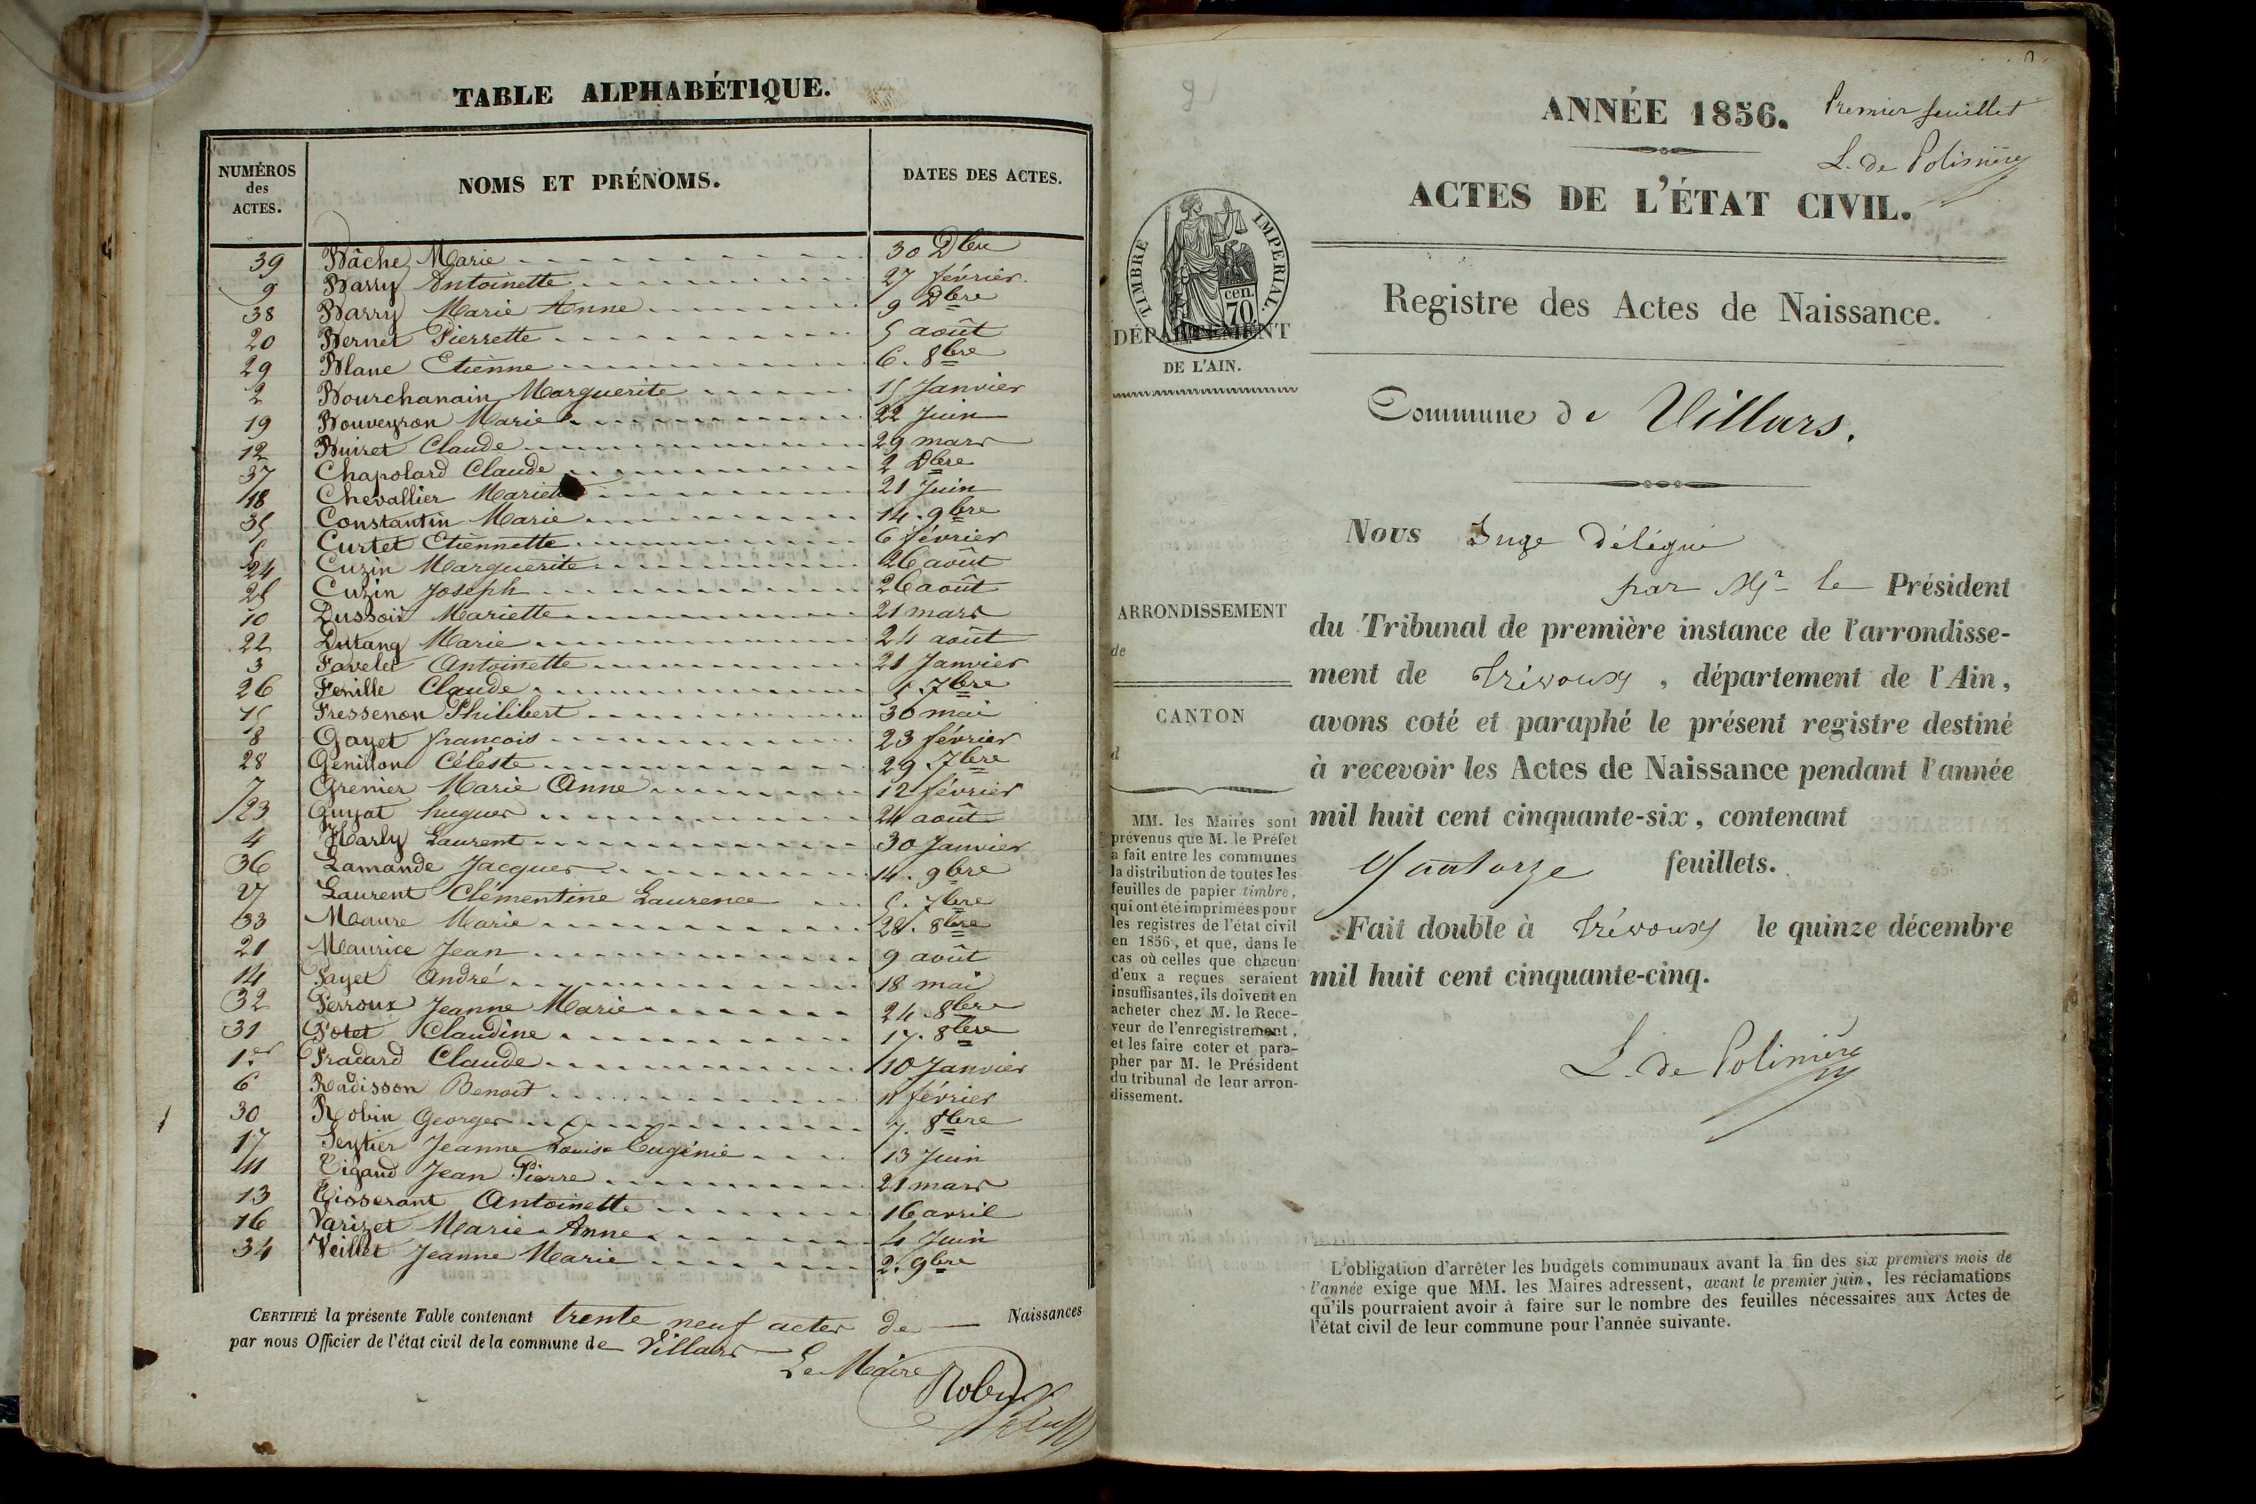 TABLE ALPHABÉTIQUE.
NUMÉROS des ACTES. NOMS ET PRÉNOMS. DATES DES ACTES.
39 Bâche Marie 30 Dbre
9 Barry Antoinette 27 février
38 Barry Marie Anne 9 Dbre
20 Bernet Pierrette 5 août
29 Blanc Etienne 6. 8bre
2 Bourchanain Marguerite 15 Janvier
19 Bouveyron Marie 22 Juin
12 Buiret Claude 29 mars
37 Chapolard Claude 2 Dbre
18 Chevallier 21 Juin
35 Constantin Marie 14. 9bre
5 Curtet Etiennette 6 février
24 Cuzin Marguerite 26 août
25 Cuzin Joseph 26 août
10 Mariette 21 mars
22 Dutang Marie 24 août
3 Favelet Antoinette 21 Janvier
26 Fenille Claude 7bre
15 Fressenon Philibert 30 mai
8 Gayet françois 23 février
28 Genillon Céleste 29. 7bre
7 Grenier Marie Anne 12 février
23 Guyat hugues 24 août
4 Harly Laurent 30 Janvier
36 Lamande Jacques 14. 9bre
27 Laurent Clémentine Laurence 7bre
33 Maure Marie 28. 8bre
21 Maurice Jean 9 août
14 Payet André 18 mai
32 Perroux Jeanne Marie 24. 8bre
31 Potet Claudine 17. 8bre
1er Pradard Claude 10 Janvier
6 Radisson Benoit février
30 Robin Georges 7. 8bre
17 Seytier Jeanne Louise Eugénie 13 Juin
11 Tigaud Jean Pierre 21 mars
13 Tisserant Antoinette 16 avril
16 Varizet Marie Anne 4 Juin
34 Veillet Jeanne Marie 2. 9bre
CERTIFIÉ la présente Table contenant trente neuf actes de Naissances
par nous Officier de l'état civil de la commune de Villars
Le Maire
Robin
ANNÉE 1856.
Premier feuillet
L. de Polinière
ACTES DE L'ÉTAT CIVIL.
TIMBRE IMPERIAL.
cen.
70
DÉPARTEMENT
DE L'AIN.
Registre des Actes de Naissance.
Commune de Villars.
ARRONDISSEMENT
de
CANTON
d
MM. les Maires sont
prévenus que M. le Préfet
a fait entre les communes
la distribution de toutes les
feuilles de papier timbre,
qui ont été imprimées pour
les registres de l'état civil
en 1856, et que, dans le
cas où celles que chacun
d'eux a reçues seraient
insuffisantes, ils doivent en
acheter chez M. le Rece-
veur de l'enregistrement,
et les faire coter et para-
pher par M. le Président
du tribunal de leur arron-
dissement.
Nous Juge Délégué
par Mr le Président
du Tribunal de première instance de l'arrondisse-
ment de Trévoux, département de l'Ain,
avons coté et paraphé le présent registre destiné
à recevoir les Actes de Naissance pendant l'année
mil huit cent cinquante-six, contenant
Quatorze feuillets.
Fait double à Trévoux le quinze décembre
mil huit cent cinquante-cinq.
L. de Polinière
L'obligation d'arrêter les budgets communaux avant la fin des six premiers mois de
l'année exige que MM. les Maires adressent, avant le premier juin, les réclamations
qu'ils pourraient avoir à faire sur le nombre des feuilles nécessaires aux Actes de
l'état civil de leur commune pour l'année suivante.